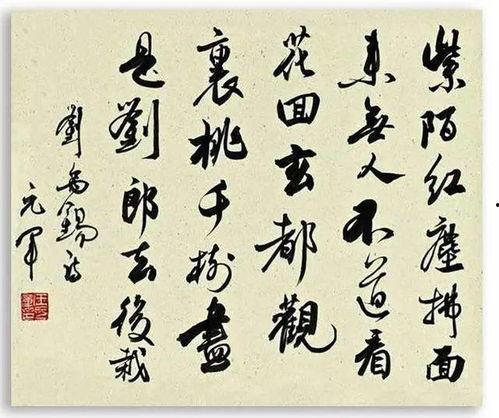 紫陌紅塵拂面
来無人不道看
花回玄都觀
裏桃千樹盡
是劉郎去後栽
劉禹錫詩
元軍